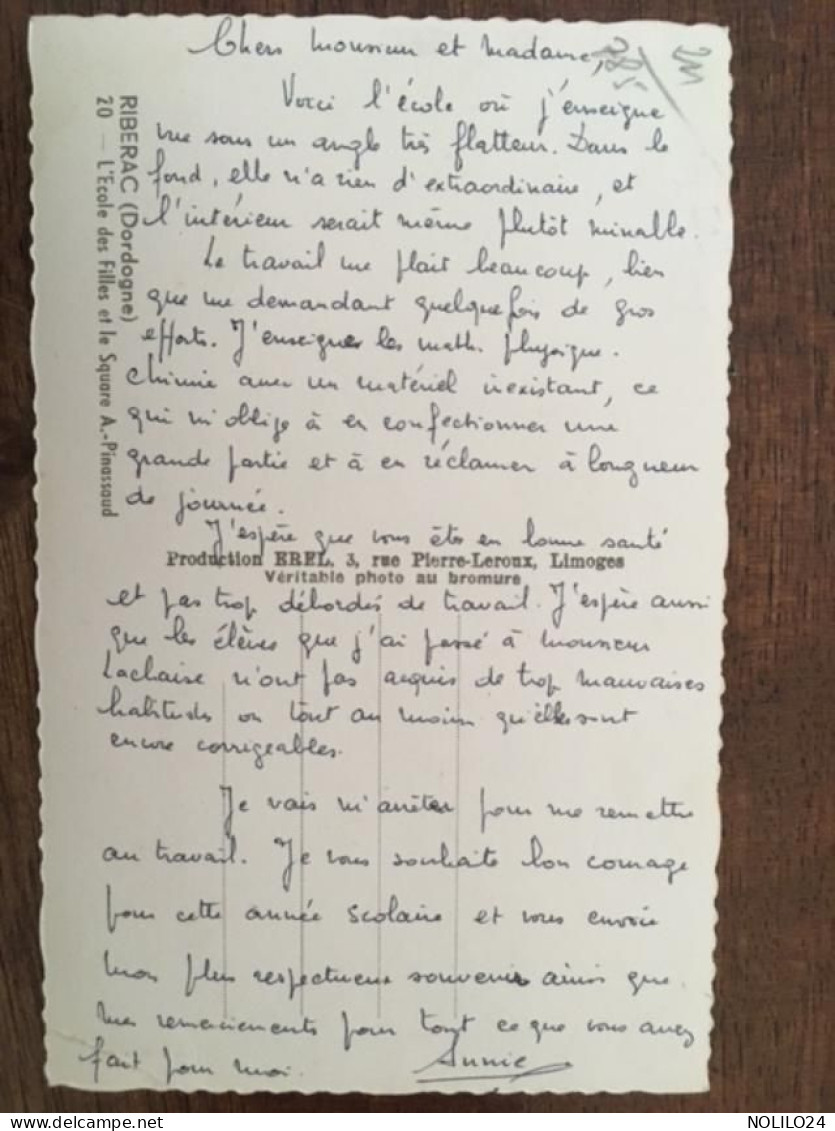 Chers Monsieur et Madame,
Voici l'école où j'enseigne
vue sous un angle très flatteur. Dans le
fond, elle n'a rien d'extraordinaire, et
l'intérieur serait même plutôt minable.
Le travail me plait beaucoup, bien
que me demandant quelquefois de gros
efforts. J'enseigne les math. physique.
chimie avec un matériel inexistant, ce
qui m'oblige à en confectionner une
grande partie et à en réclamer à longueur
de journée.
J'espère que vous êtes en bonne santé
Production EREL, 3, rue Pierre-Leroux, Limoges
Véritable photo au bromure
et pas trop débordés de travail. J'espère aussi
que les élèves que j'ai passé à Monsieur
Laclaise n'ont pas acquis de trop mauvaises
habitudes ou tout au moins qu'elles sont
encore corrigeables.
Je vais m'arrêter pour me remettre
au travail. Je vous souhaite bon courage
pour cette année scolaire et vous envoie
mon plus respectueux souvenir ainsi que
mes remerciements pour tout ce que vous avez
fait pour moi.
Annie
RIBERAC (Dordogne)
20 — L'Ecole des Filles et le Square A.-Pinassaud
NOLILO24